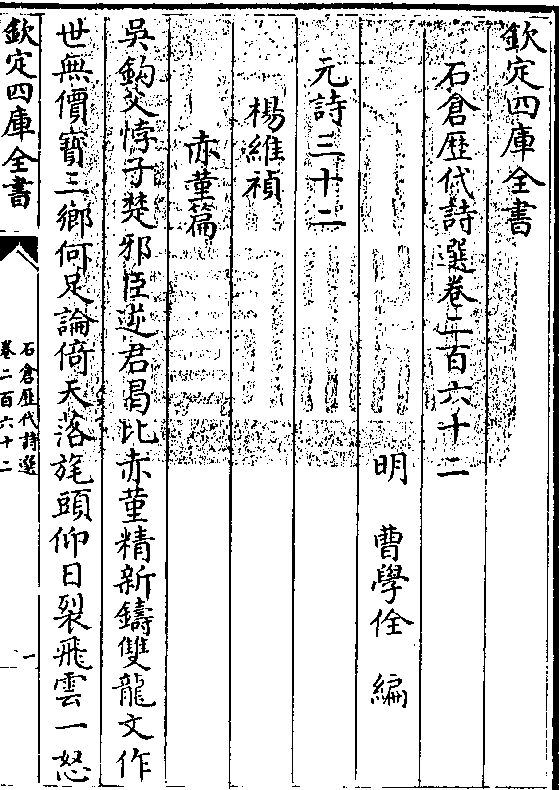 欽定四庫全書
石倉歴代詩選卷二百六十二
明 曹學佺 編
元詩三十二
楊維禎
赤堇篇
吳鈎父悖子楚邪臣逆君曷比赤堇精新鑄雙龍文作
世無價寳三鄉何足論倚天落旄頭仰日裂飛雲一怒
欽定四庫全書
石倉歴代詩選
卷二百六十二
一